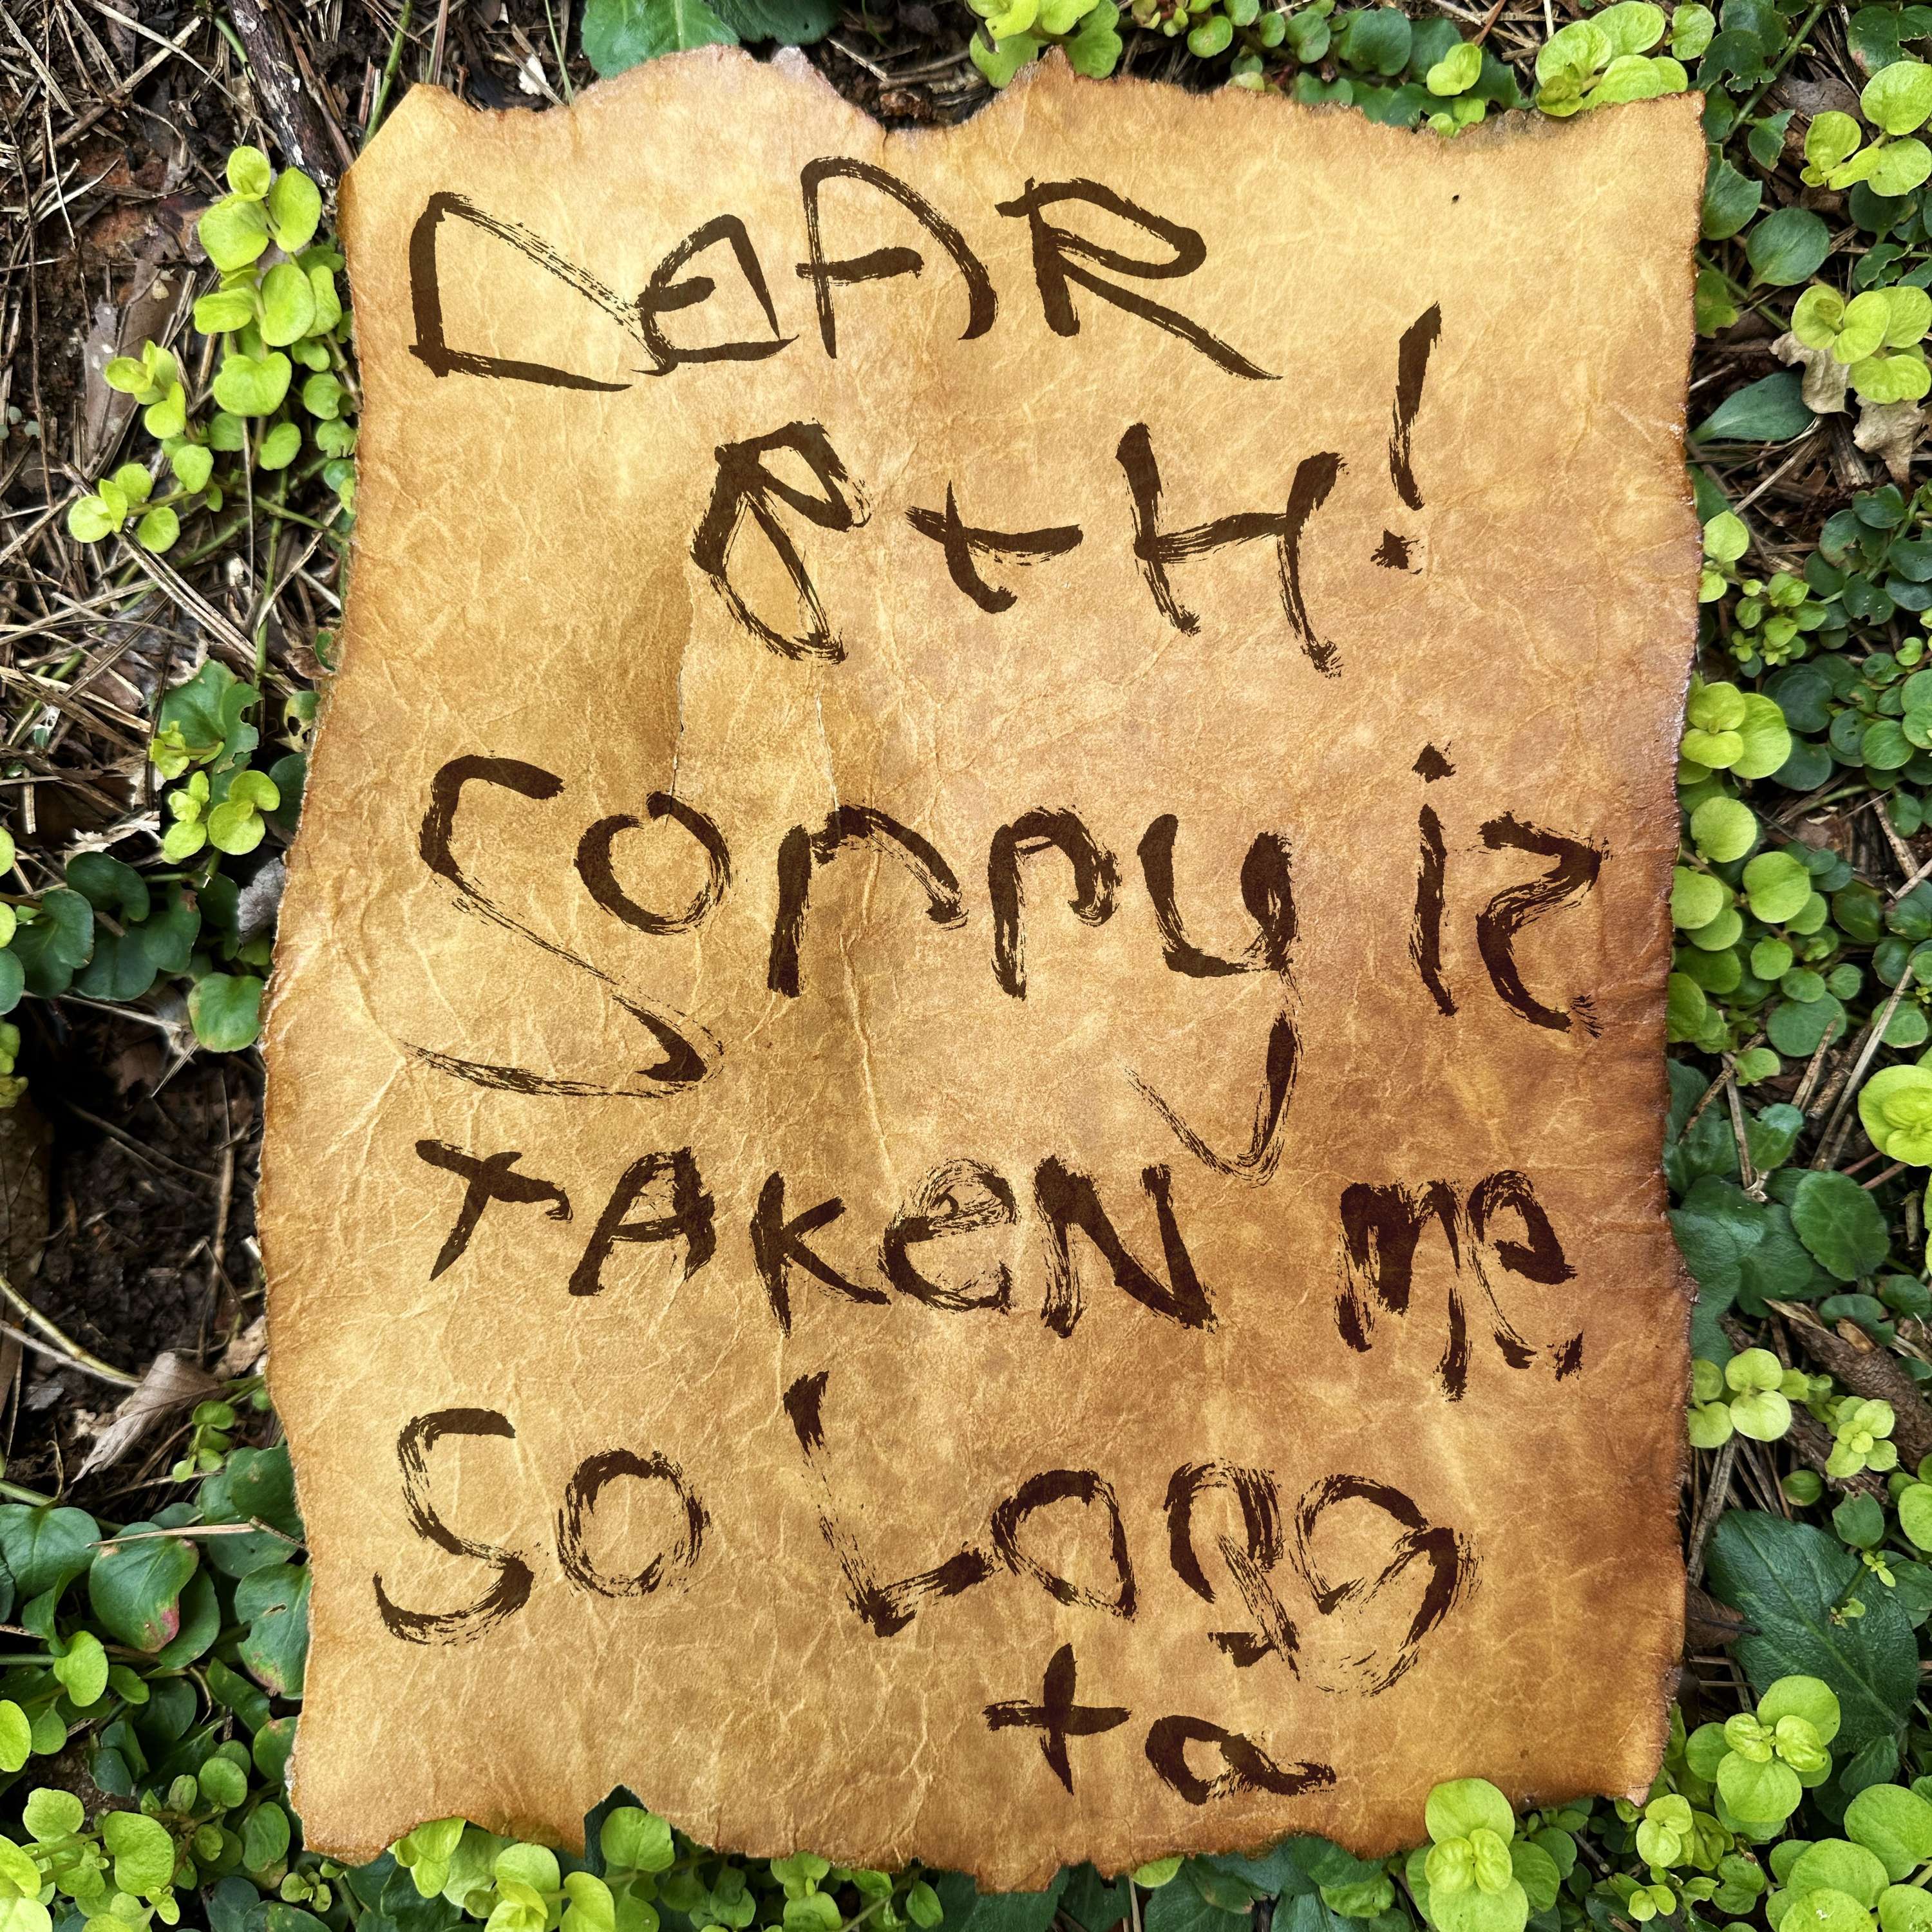 DEAR
R+H!
Sorry it
TAKEN me
so Long
to